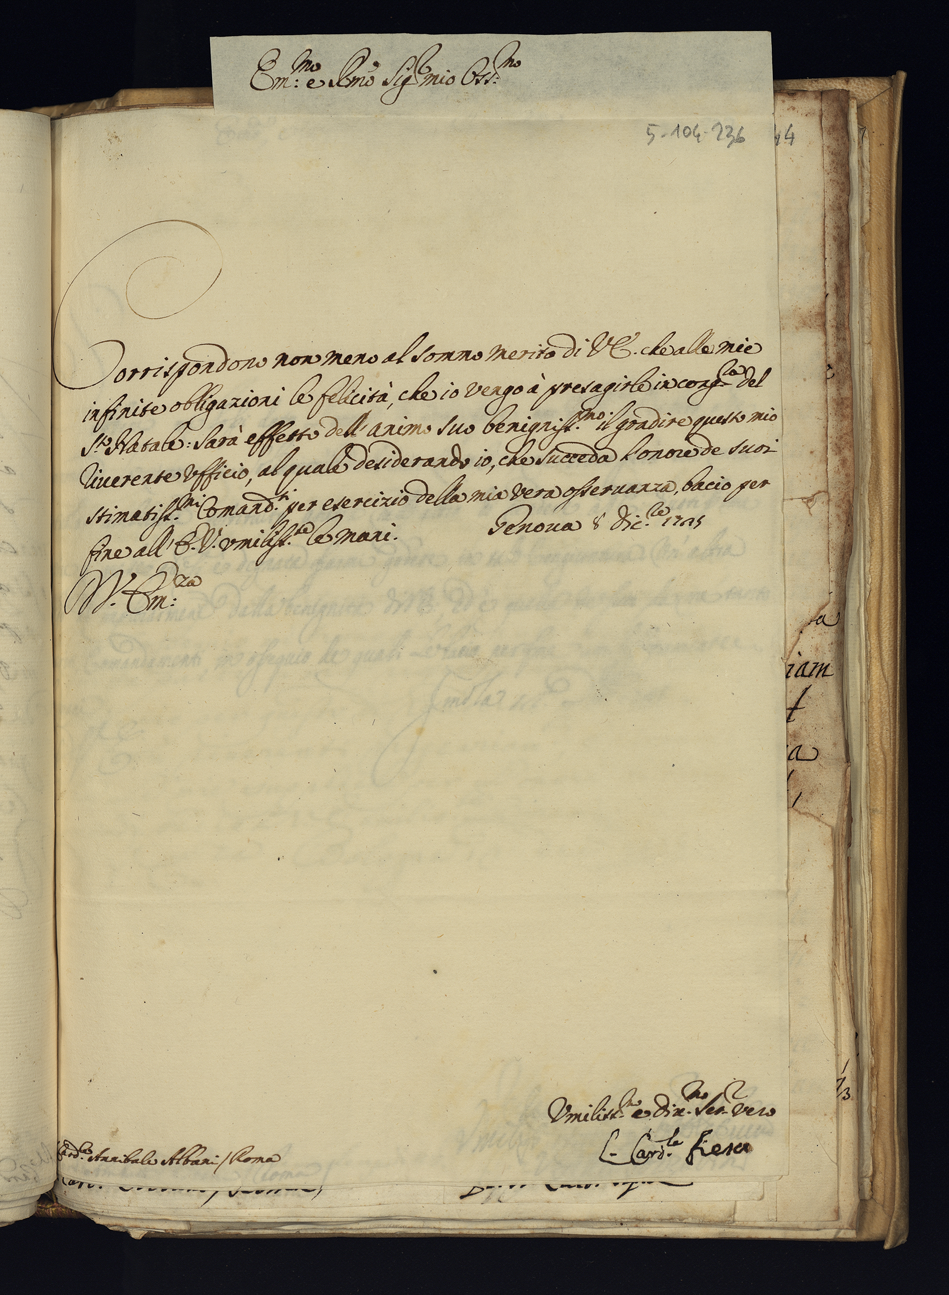 Em:mo e Rmo Sigr mio Oss:mo
5-104-236 44
Corrispondono non meno al sommo merito di V.E. che alle mie
infinite obligazioni le felicità, che io vengo à presagirle in cong.ra del
S.to Natale: Sarà effetto dell'animo suo benigniss.mo il gradire questo mio
riuerente Vfficio, al quale desiderando io, che succeda l'onore de suoi
stimatiss.mi Comand.ti per esercizio della mia vera osseruanza, bacio per
fine all'E.V. vmiliss.te le mani. Genova 8 Dic.re
V. Em:za
iam
Vmiliss.mo e diu.mo Ser.r vero
L. Card.le Fieschi
Card.le Annibale Albani / Roma